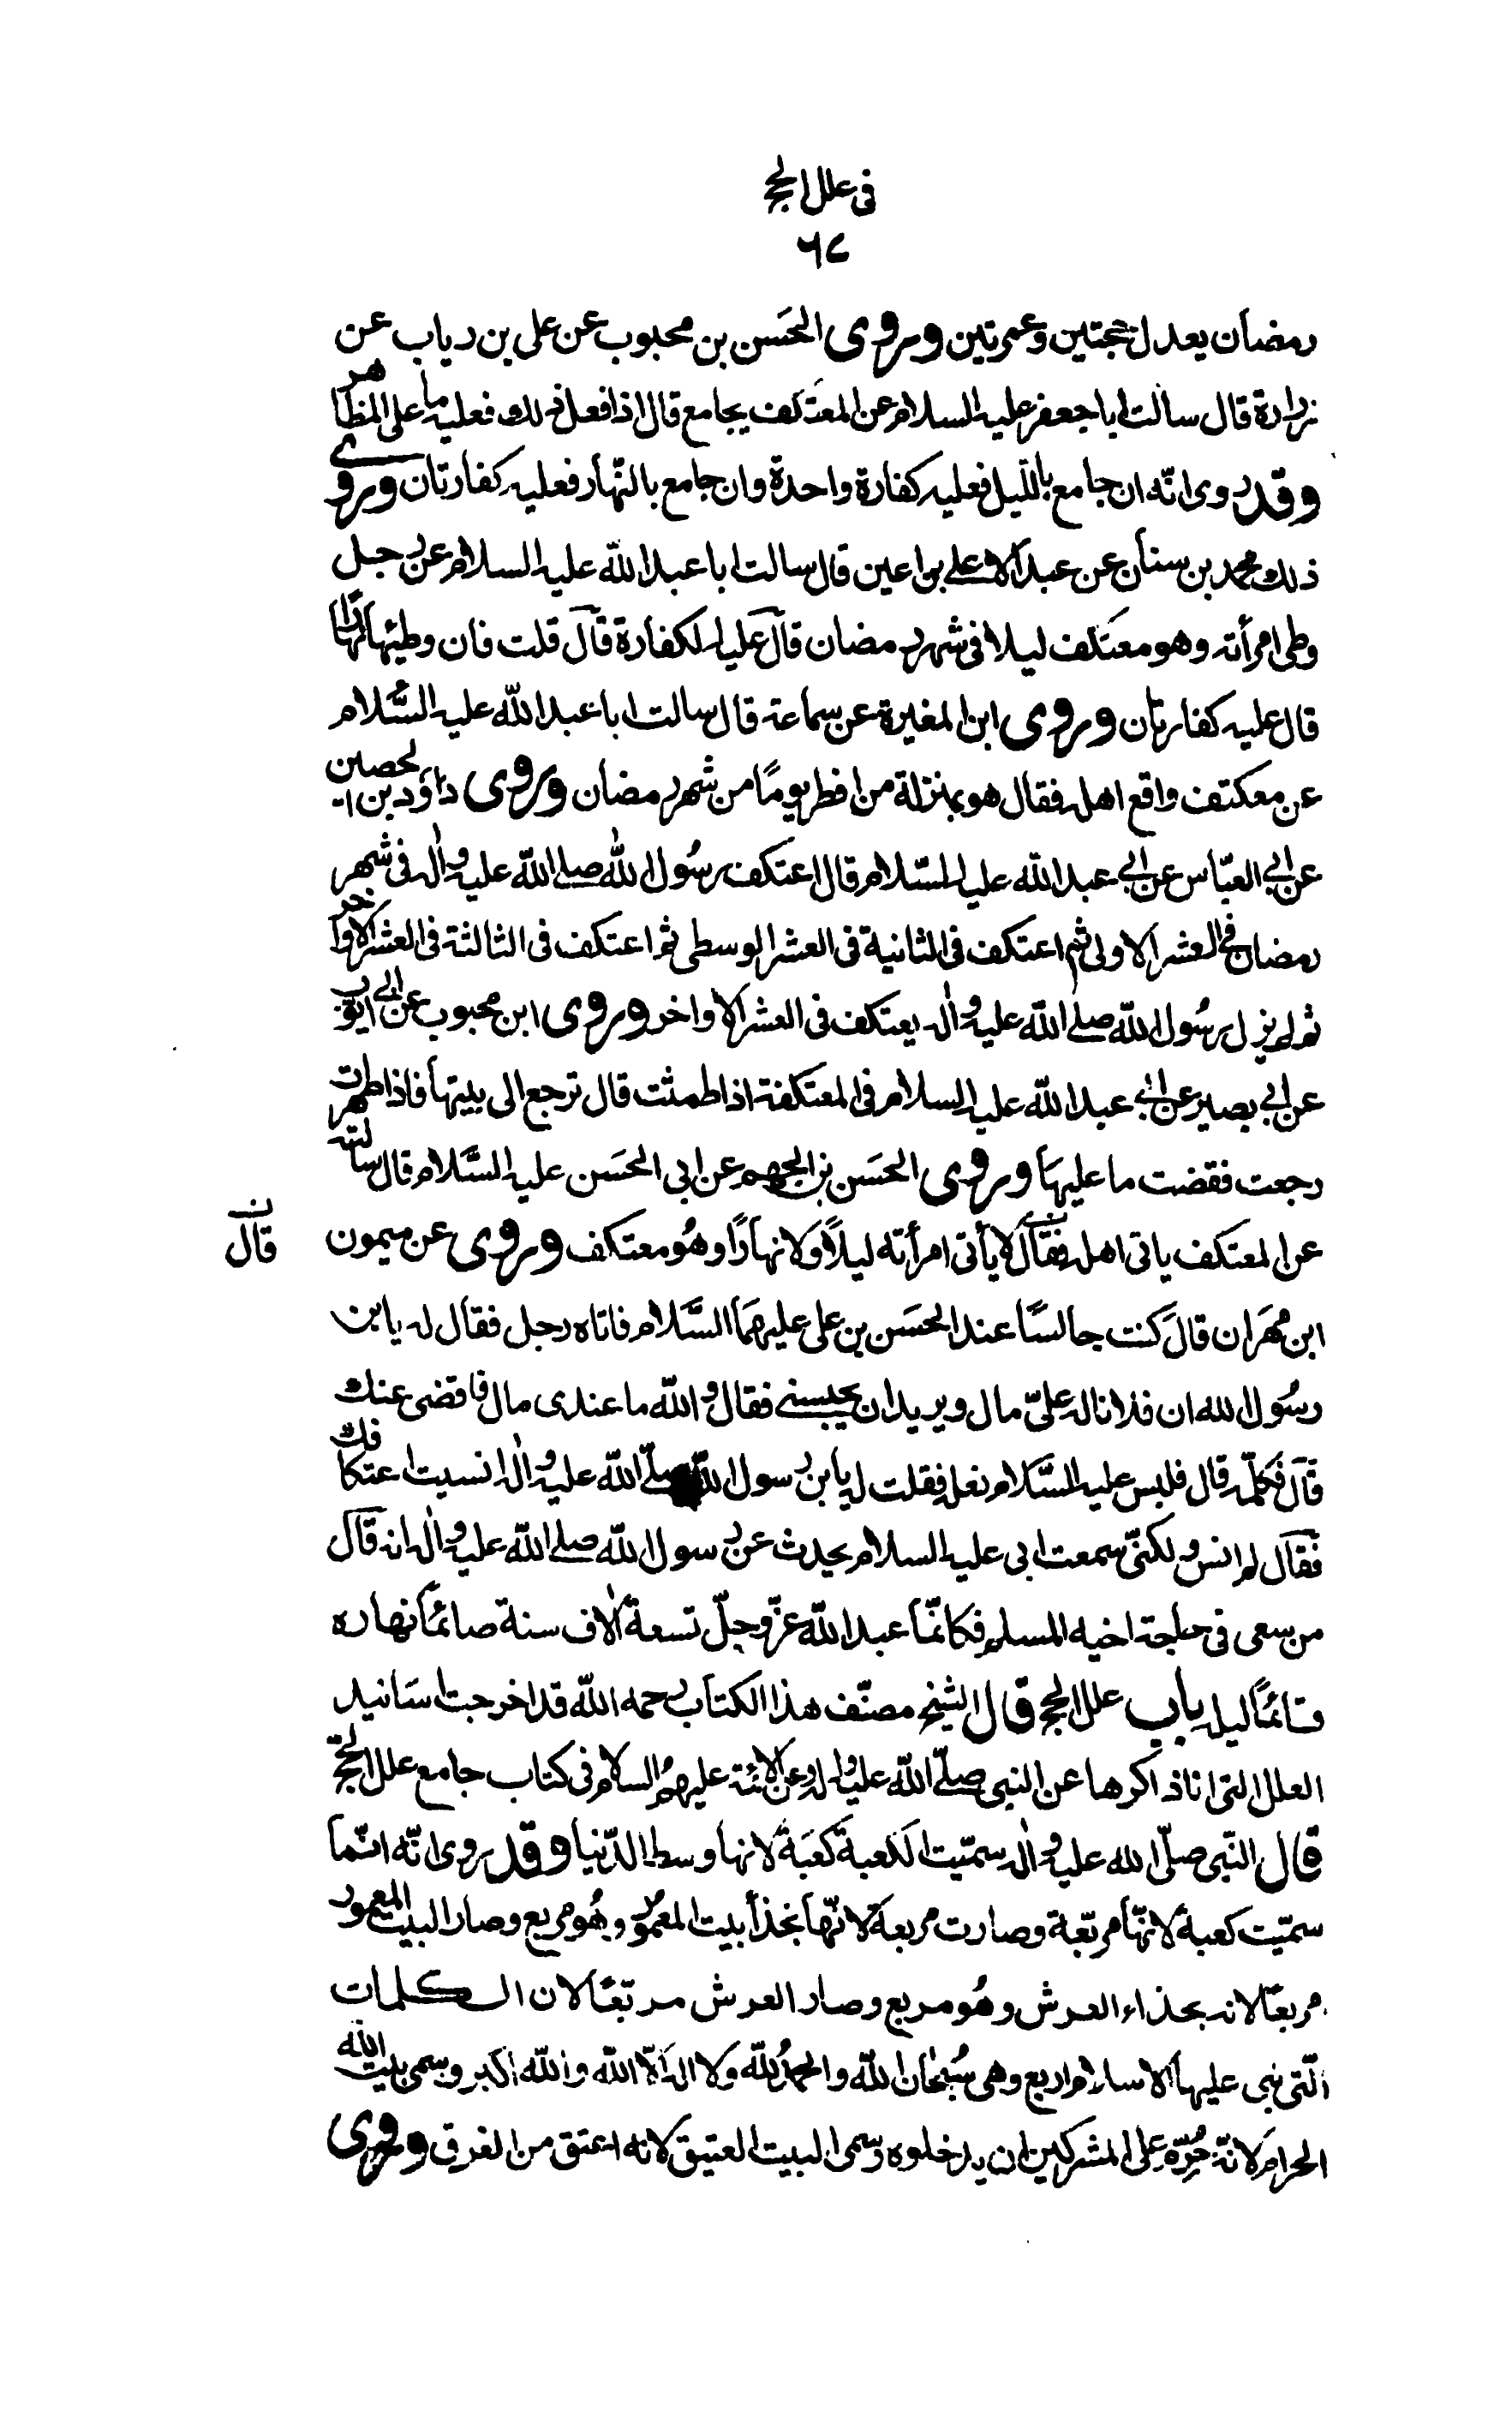 فى علل الحج
٦٧
رمضان يعدل حجتين وعمرتين وروى الحَسَن بن محبوب عن على بن رياب عن
زرارة قال سالت ابا جعفر عليه السلام عن المعتكف يجامع قال اذا فعل ذلك فعليه ما على المظاهر
وقد روى انّه ان جامع بالليل فعليه كفارة واحدة وان جامع بالنّهار فعليه كفارتان وروى
ذلك محمد بن سنان عن عبد الاعلى بن اعين قال سالت ابا عبد الله عليه السلام عن رجل
وطى امرأته وهو معتكف ليلا فى شهر رمضان قال عليه الكفارة قال قلت فان وطيها نهارًا
قال عليه كفارتان وروى ابن المغيرة عن سماعة قال سالت ابا عبد الله عليه السَّلام
عن معكتف واقع اهله فقال هو بمنزلة من افطر يومًا من شهر رمضان وروى داود بن الحصين
عن ابي العبّاس عن ابي عبد الله عليه السّلام قال اعتكف رسُول الله صلى الله عليه واٰله فى شهر
رمضان فى العشر الاولى ثم اعتكف فى الثانية فى العشر الوسطى ثم اعتكف فى الثالثة فى العشر الاواخر
ثم لم يزل رسُول الله صلى الله عليه واٰله يعتكف فى العشر الاواخر وروى ابن محبوب عن ابى ايوب
عن ابي بصير عن ابي عبد الله عليه السلام فى المعتكفة اذا طمثت قال ترجع الى بيتها فاذا طهرت
رجعت فقضت ما عليها وروى الحَسَن بن الجهم عن ابى الحسَن عليه السَّلام قال سالته
عن المعتكف ياتى اهله فقال لا يأتى امرأته ليلًا ولا نهارًا وهُو معتكف وروى عن ميمون
ن قال
ابن مهرَان قال كنت جالسًا عند الحسَن بن على عليهمَا السَّلام فاتاه رجل فقال له يا ابن
رسُول الله ان فلانا له علىّ مال ويريد ان يحبسنى فقال والله ما عندى مال فاقضى عنك
قال فكلّمه قال فلبس عليه السَّلام نعله فقلت له يا بن رسول الله صلّى الله عليه واٰله انسيت اعتكافك
فقال لم انس ولكنّى سمعت ابى عليه السلام يحدث عن رسول الله صلى الله عليه واٰله انه قال
من سعى فى حاجة اخيه المسلم فكانمّا عبد الله عزّ وجلّ تسعة اٰلاف سنة صائمًا نهاره
قائمًا ليله باب علل الحج قال الشيخ مصنّف هذا الكتاب رحمه الله قد اخرجت اسَانيد
العلل التى انا ذاكرها عن النبى صلّى الله عليه واله وعن الائمّة عليهمُ السلام فى كتاب جامع علل الحجّ
قال النّبى صلّى الله عليه واٰله سمّيت الكعبة كعبَة لانها وسط الدّنيا وقد روى انّه انّما
سمّيت كعبة لانّها مربّعة وصارت مربعة لانّها بحذأ بيت المعمُور وهُو مربع وصار البيت المعمور
مربعًا لانه بحذاء العرش وهُو مربع وصار العرش مربّعًا لان الكلمات
الّتى بنى عليها الاسلام اربع وهى سُبحٰان الله والحمدُ لله ولا الٰه الّا الله والله اكبر وسمى بيت الله
الحرام لانّه حُرّم على المشركين ان يدخلوه وسمى البيت العتيق لانه اعتق من الغرق وروى